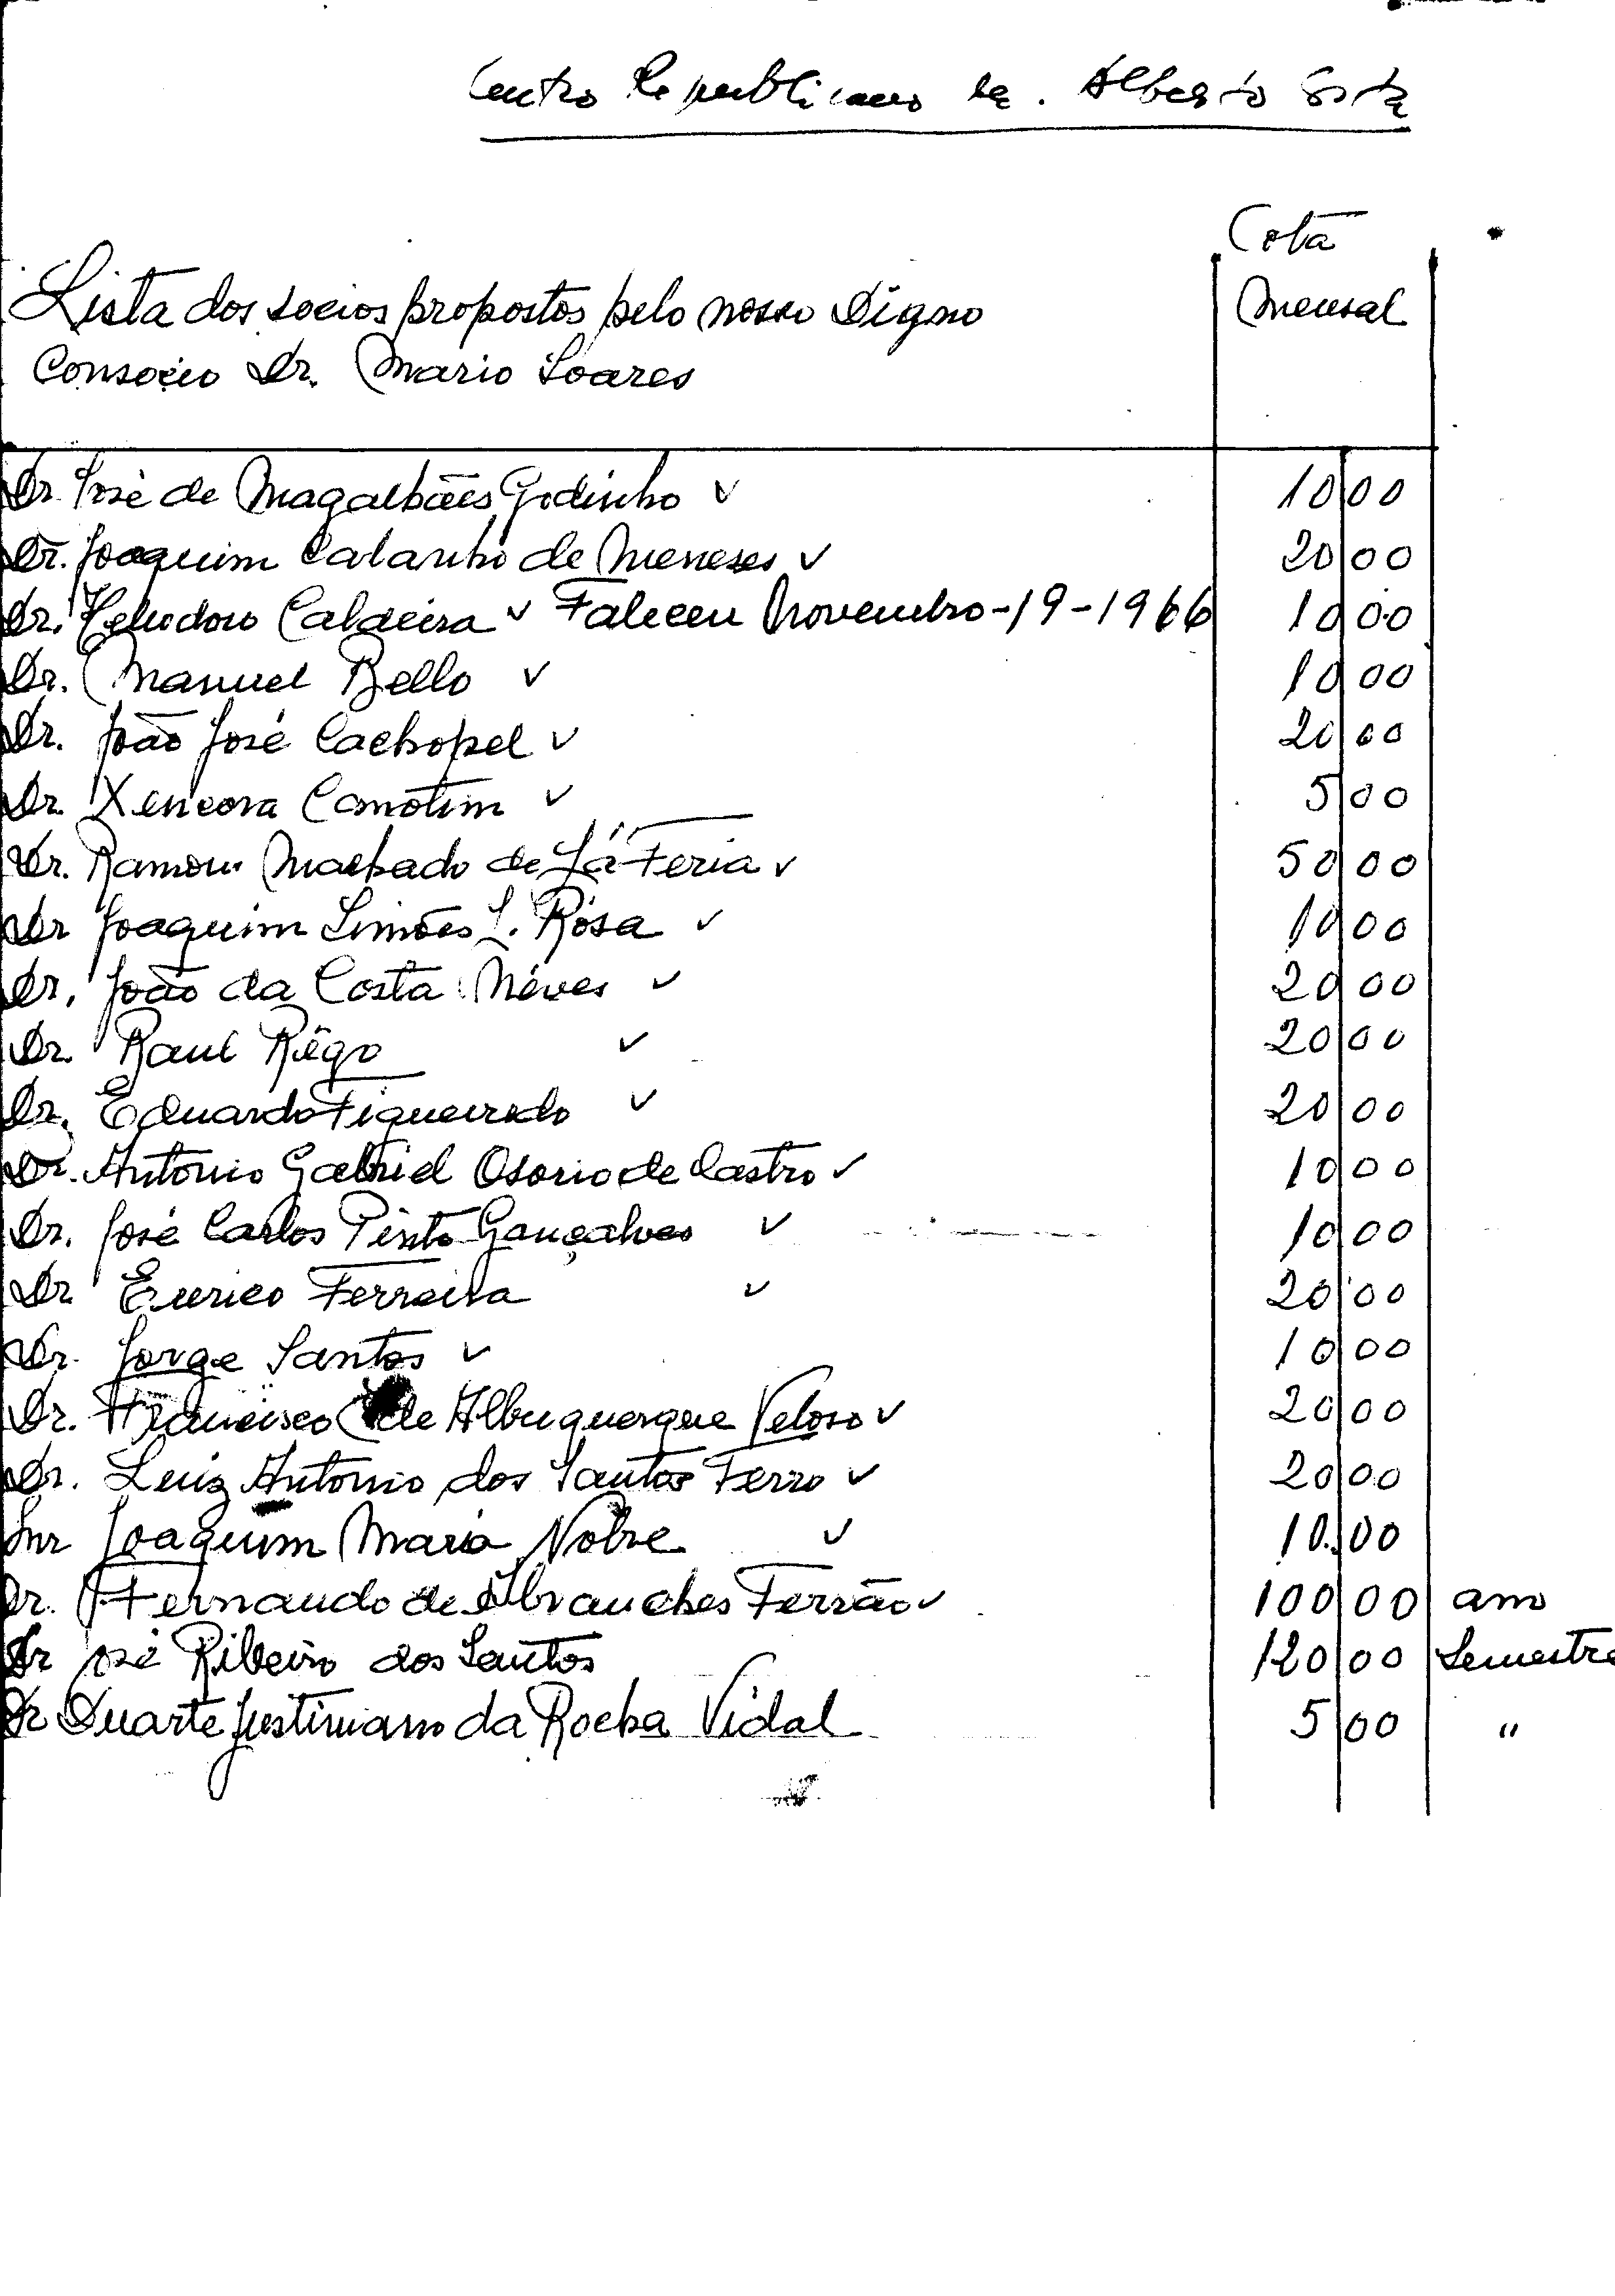 Centro Republicano Dr. Alberto Costa
Cota
Mensal
Lista dos socios propostos pelo nosso Digno
Consocio Dr. Mario Soares
Dr. José de Magalhães Godinho ✓ 10 00
Dr. Joaquim Catanho de Meneses ✓ 20 00
Dr. Heliodoro Caldeira ✓ Faleceu Novembro-19-1966 10 00
Dr. Manuel Bello ✓ 10 00
Dr. João José Cachopel ✓ 20 00
Dr. Xencora Camotim ✓ 5 00
Dr. Ramon Machado de Lá Feria ✓ 50 00
Dr Joaquim Simões L. Rosa ✓ 10 00
Dr. João da Costa Néves ✓ 20 00
Dr. Raul Rêgo ✓ 20 00
Dr. Eduardo Figueiredo ✓ 20 00
Dr. Antonio Gabriel Osorio de Castro ✓ 10 00
Dr. José Carlos Pinto Gonçalves ✓ 10 00
Dr Eurico Ferreira ✓ 20 00
Dr. Jorge Santos ✓ 10 00
Dr. Francisco de Albuquerque Veloso ✓ 20 00
Dr. Luiz Antonio dos Santos Ferro ✓ 20 00
Snr Joaquim Maria Nobre ✓ 10 00
Dr. Fernando de Abranches Ferrão ✓ 100 00 ano
Dr José Ribeiro dos Santos 120 00 Semestre
Dr Duarte Justiniano da Rocha Vidal 5 00 "